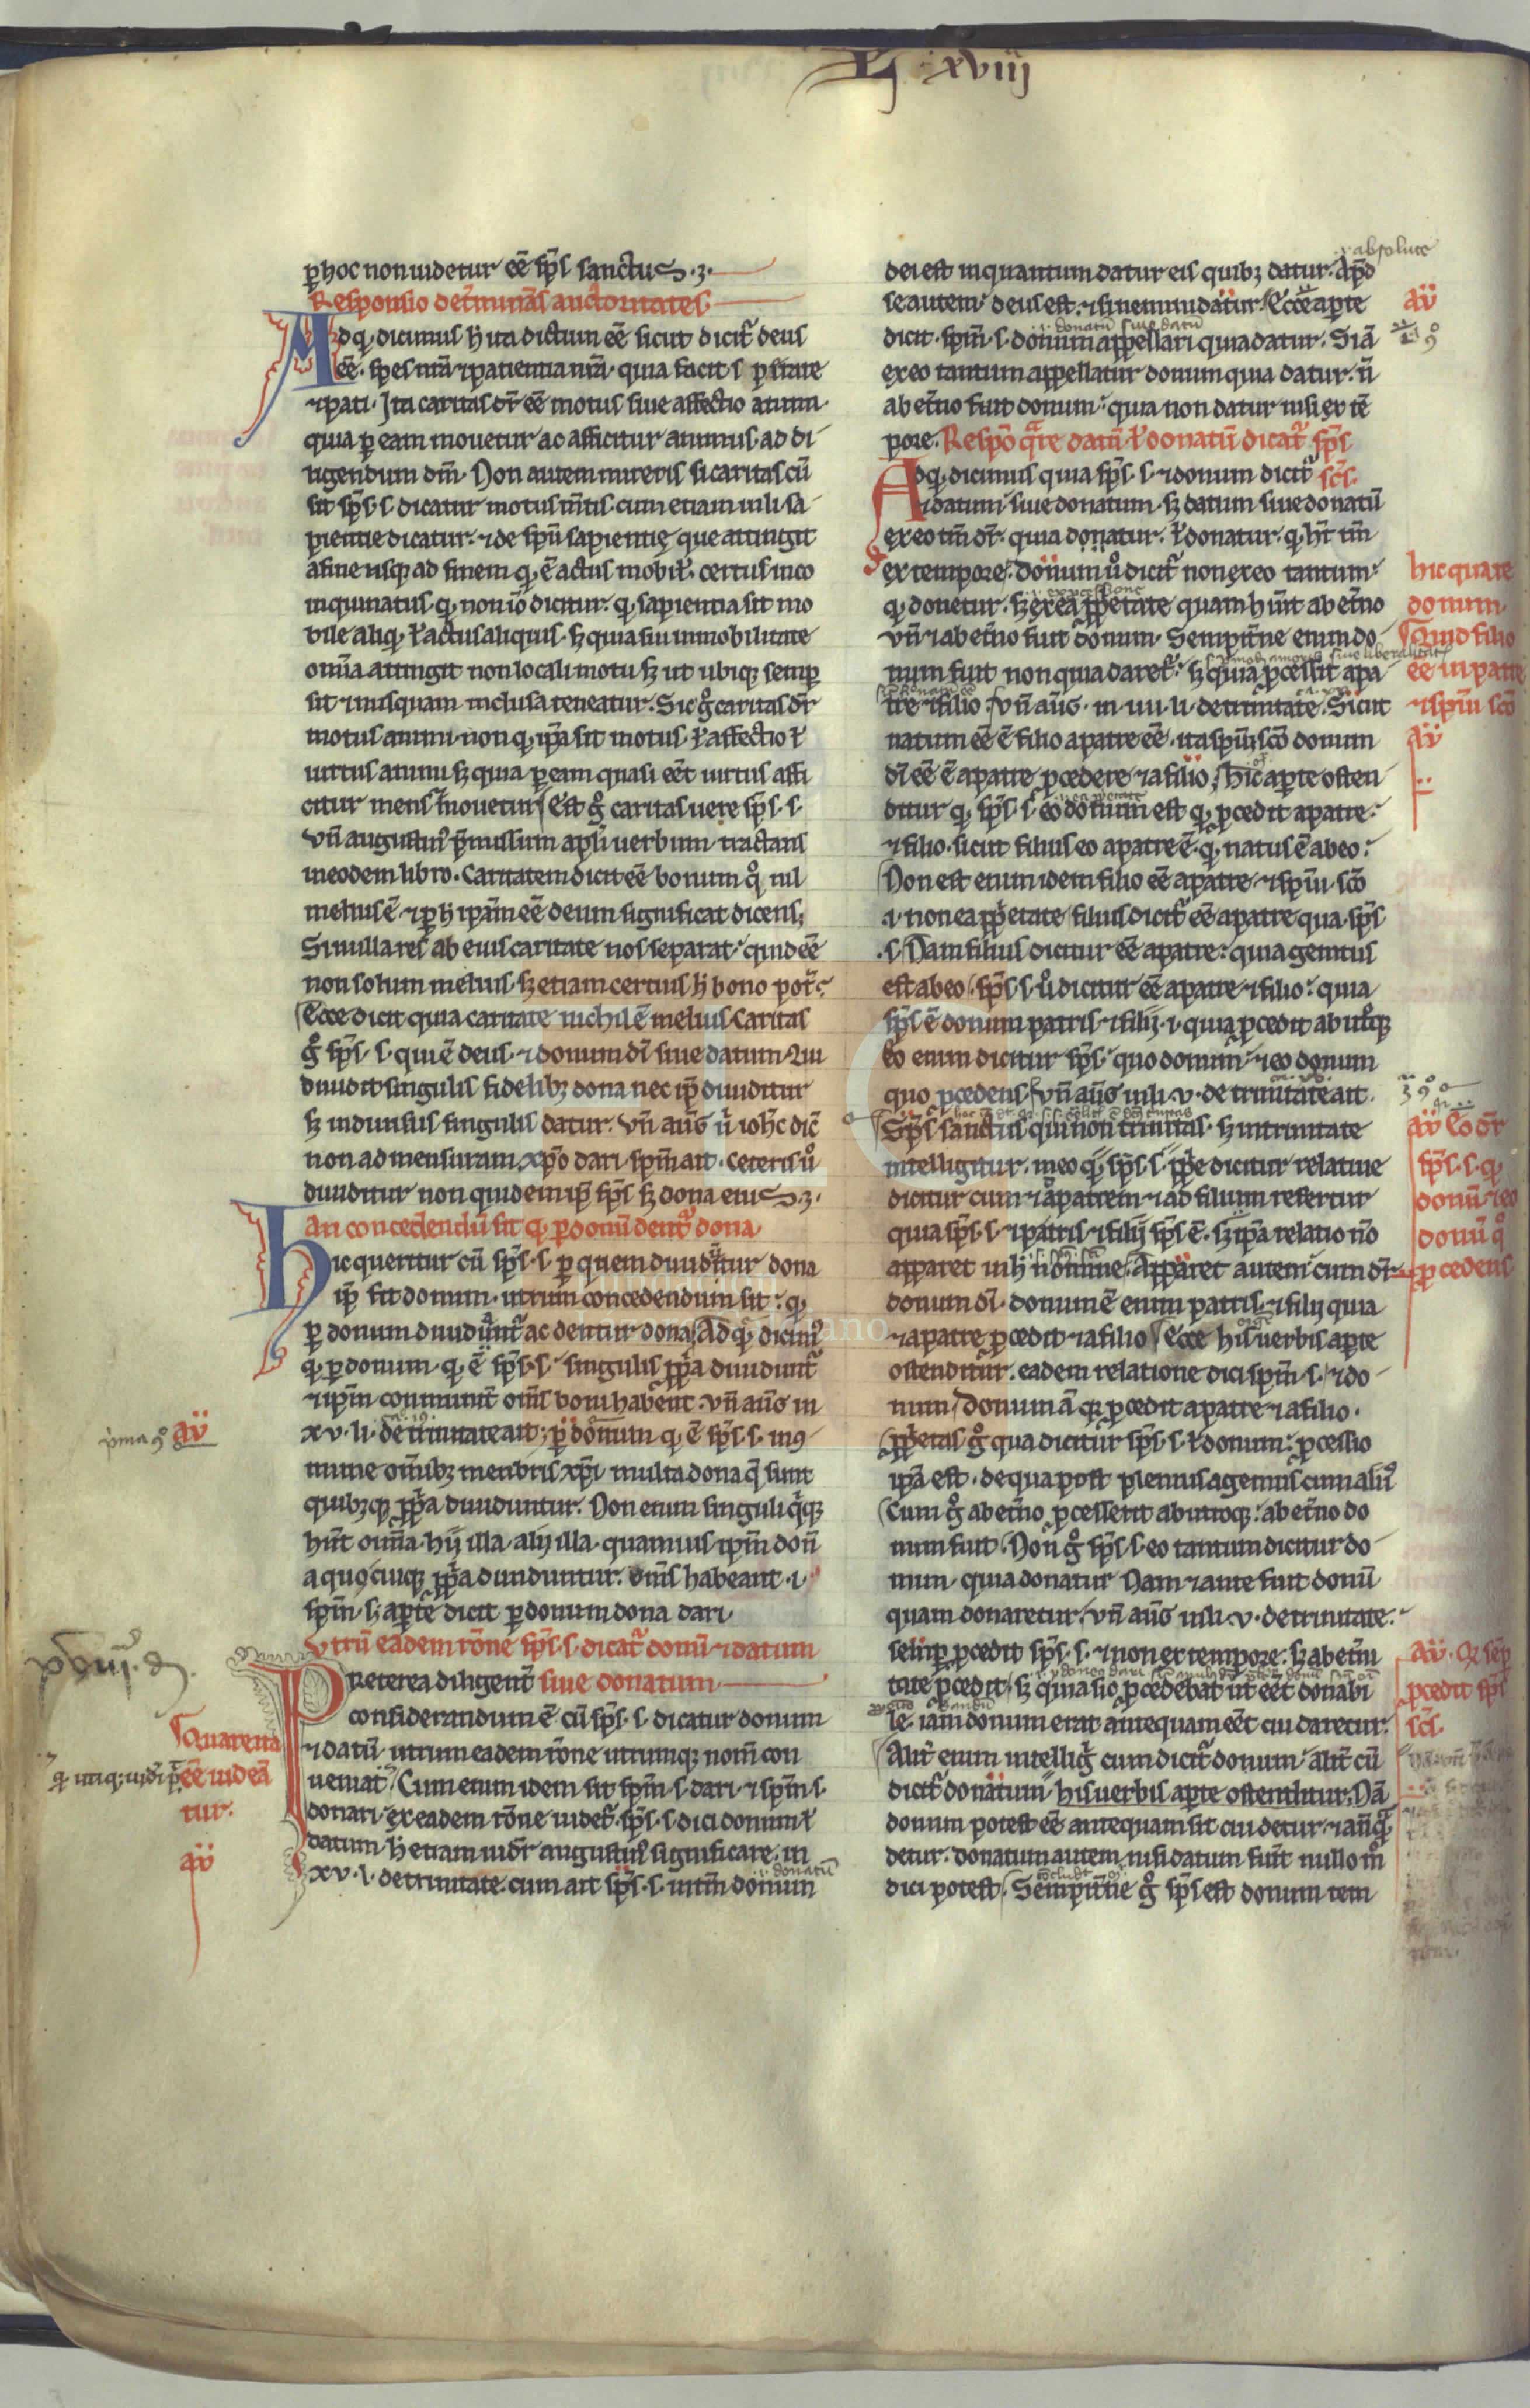 L xviij
ꝑ hoc non uidetur eē sp̄s sanctus.
Responsio det̄minās auctoritates.
Ad qđ dicimus h̄ ita dictum eē sicut dicit̄ deus
eē. spes nr̄a ⁊ patientia nr̄a. quia facit s ꝑ stare
⁊ pati. Ita caritas dr̄ eē motus siue affectio animi.
quia ꝑ eam mouetur ac afficitur animus ad di
ligendum dm̄. Non autem mireris si caritas cū
sit sp̄s .s. dicatur motus m̄tis. cum etiam in li. sa
pientie dicatur. ⁊ de sp̄u sapientię que attingit
a fine usq̄ ad finem qđ ē actus mobił. certus inco
inquinatus. qđ non iō dicitur. qđ sapientia sit mo
bile aliqđ ł actus aliquis. sꝫ quia sui inmobilitate
om̄ia attingit non locali motu sꝫ ut ubiqꝫ semꝑ
sit ⁊ nusquam inclusa teneatur. Sic gͦ caritas dr̄
motus animi. non qđ ip̄a sit motus. ł affectio ł
uirtus animi sꝫ quia ꝑ eam quasi eēt uirtus affi
citur mens ⁊ mouetur. Est gͦ caritas uere sp̄s .s.
Vn̄ augustin' p̄missum apłi uerbum tractans
in eodem libro. Caritatem dicit eē bonum qͦ nil
melius ē. ⁊ ꝑ h̄ ip̄am eē deum significat dicens.
Si nulla res ab eius caritate nos separat. quid eē
non solum melius. sꝫ etiam certius h̄ bono pot̄.
Ecce dicit quia caritate nichil ē melius. Caritas
gͦ sp̄s .s. qui ē deus. ⁊ donum dī siue datum. Qui
diuidit singulis fidelibꝫ dona nec ip̄e diuiditur
sꝫ indiuisus singulis datur. Vn̄ aūg ubi ioh̄s dic̄
non ad mensuram xp̄o dari sp̄m ait. Ceteris ūo
diuiditur non quidem ip̄e sp̄s sꝫ dona eius.
An concedendū sit qđ ꝑ donū dent̄ dona.
Hic queritur cū sp̄s .s. ꝑ quem diuidūtur dona
ip̄e sit donum. utrum concedendum sit. qđ
ꝑ donum diuidant̄ ac dentur dona. Ad qđ dicim'
qđ ꝑ donum. qđ ē sp̄s .s. singulis ꝓp̄a diuidunt̄
⁊ ip̄m communit̄ om̄s boni habent. vn̄ aūg in
xv. li. de trinitate ait. ꝑ donum qđ ē sp̄s .s. in 9
mune om̄ibꝫ menbris xp̄i multa dona q̄ sunt
quibꝫqꝫ ꝓp̄a diuiduntur. Non enim singuli q̄qꝫ
hn̄t om̄ia. hij illa. alij illa. quamuis ip̄m donū
a quo cuiqꝫ ꝓp̄a diuiduntur. om̄s habeant .i.
sp̄m .s. aꝑte dicit ꝑ donum dona dari.
Vtrū eadem rōne sp̄s .s. dicat̄ donū ⁊ datum
siue donatum
Preterea diligent̄
considerandum ē cū sp̄s .s. dicatur donum
⁊ datū. utrum eadem rōne utrumqꝫ nom̄ con
ueniat. Cum enim idem sit sp̄m .s. dari. ⁊ sp̄m .s.
donari. ex eadem rōne uidet̄. sp̄s .s. dici donum ł
datum. h̄ etiam uidr̄ augustin' significare. in
xv. l. de trinitate. cum ait. sp̄s .s. int̄m donum
dei est in quantum datur eis quibꝫ datur. Apd̄
se autem deus est. ⁊ si nemini datur. Ecce aꝑte
dicit. sp̄m .s. donum appellari quia datur. Si ā
ex eo tantum appellatur donum quia datur. n̄
ab et̄no fuit donum. quia non datur nisi ex tē
pore. Respō qr̄e datū ł donatū dicat̄ sp̄s
sc̄s.
Ad qđ dicimus quia sp̄s .s. ⁊ donum dicit̄
⁊ datum siue donatum. sꝫ datum siue donatū
ex eo tm̄ dr̄. quia donatur. ł donatur. qđ h̄t tm̄
ex tempore. Donum ūo dicit̄ non ex eo tantum
qđ donetur. sꝫ ex ea ꝓp̄etate quam h̄uit ab et̄no
vn̄ ⁊ ab et̄no fuit donum. Sempit̄ne enim do
num fuit non quia daret̄. sꝫ quia ꝓcessit a pa
tre ⁊ filio. vn̄ aūg. in iiii. li. de trinitate. Sicut
natum eē ē filio a patre eē. ita sp̄ui sc̄o donum
dī eē ē a patre ꝓcedere ⁊ a filio. Hic aꝑte osten
ditur qđ sp̄s .s. eo donum est qđ ꝓcedit a patre.
⁊ filio. sicut filius eo a patre ē. qđ natus ē ab eo.
Non est enim idem filio eē a patre ⁊ sp̄ui. sc̄o
.i. non ea ꝓp̄etate filius dicit̄ eē a patre qua sp̄s
.s. Nam filius dicitur eē a patre. quia genitus
est ab eo. sp̄s .s. ūo dicitur eē a patre ⁊ filio. quia
sp̄s ē donum patris ⁊ filij .i. quia ꝓcedit ab utͦqꝫ
Eo enim dicitur sp̄s quo donum. ⁊ eo donum
quo ꝓcedens. vn̄ aūg in li. v. de trinitate ait.
Sp̄s sanctus qui non trinitas. sꝫ in trinitate
intelligitur. in eo qđ sp̄s .s. ꝓp̄e dicitur relatiue
dicitur cum ⁊ ad patrem ⁊ ad filium refertur
quia sp̄s .s. ⁊ patris ⁊ filij sp̄s ē. sꝫ ip̄a relatio nō
apparet in h̄ nomine. Apparet autem cum dr̄
donum dī. donum ē enim patris ⁊ filij quia
⁊ a patre ꝓcedit ⁊ a filio. Ecce his uerbis aꝑte
ostenditur. eadem relatione dici sp̄m .s. ⁊ do
num. donum ā qꝫ ꝓcedit a patre ⁊ a filio.
ꝓp̄etas gͦ qua dicitur sp̄s .s. ł donum. ꝓcessio
ip̄a est. de qua post plenius agemus cum aliis
Cum gͦ ab et̄no ꝓcesserit ab utroqꝫ. ab et̄no do
num fuit. Non gͦ sp̄s .s. eo tantum dicitur do
num quia donatur. Nam ⁊ ante fuit donū
quam donaretur. vn̄ aūg in li. v. de trinitate.
semꝑ ꝓcedit sp̄s .s. ⁊ non ex tempore. sꝫ ab et̄ni
tate ꝓcedit. sꝫ quia sic ꝓcedebat ut eēt donabi
le. iam donum erat antequam eēt cui daretur.
Alit̄ enim intelligit̄ cum dicit̄ donum. alit̄ cū
dicit̄ donatum. his uerbis aꝑte ostenditur. Nā
donum potest eē antequam sit cui detur. ⁊ anq̄
detur. donatum autem nisi datum fuit nullo m̄
dici potest. Sempit̄ne gͦ sp̄s est donum tem
absolute
aū
hic quare
donum.
Quid filio
eē in patre
⁊ sp̄ui sc̄o
aū
aū Eo dr̄
sp̄s .s. qđ
donū ⁊ eo
donū qͦ
ꝓcedens
aū. Qđ sēꝑ
ꝓcedit sp̄s
sc̄s.
p̄ma 9° aū
xviii. d.
Quare ita
eē uideā
tur.
aū